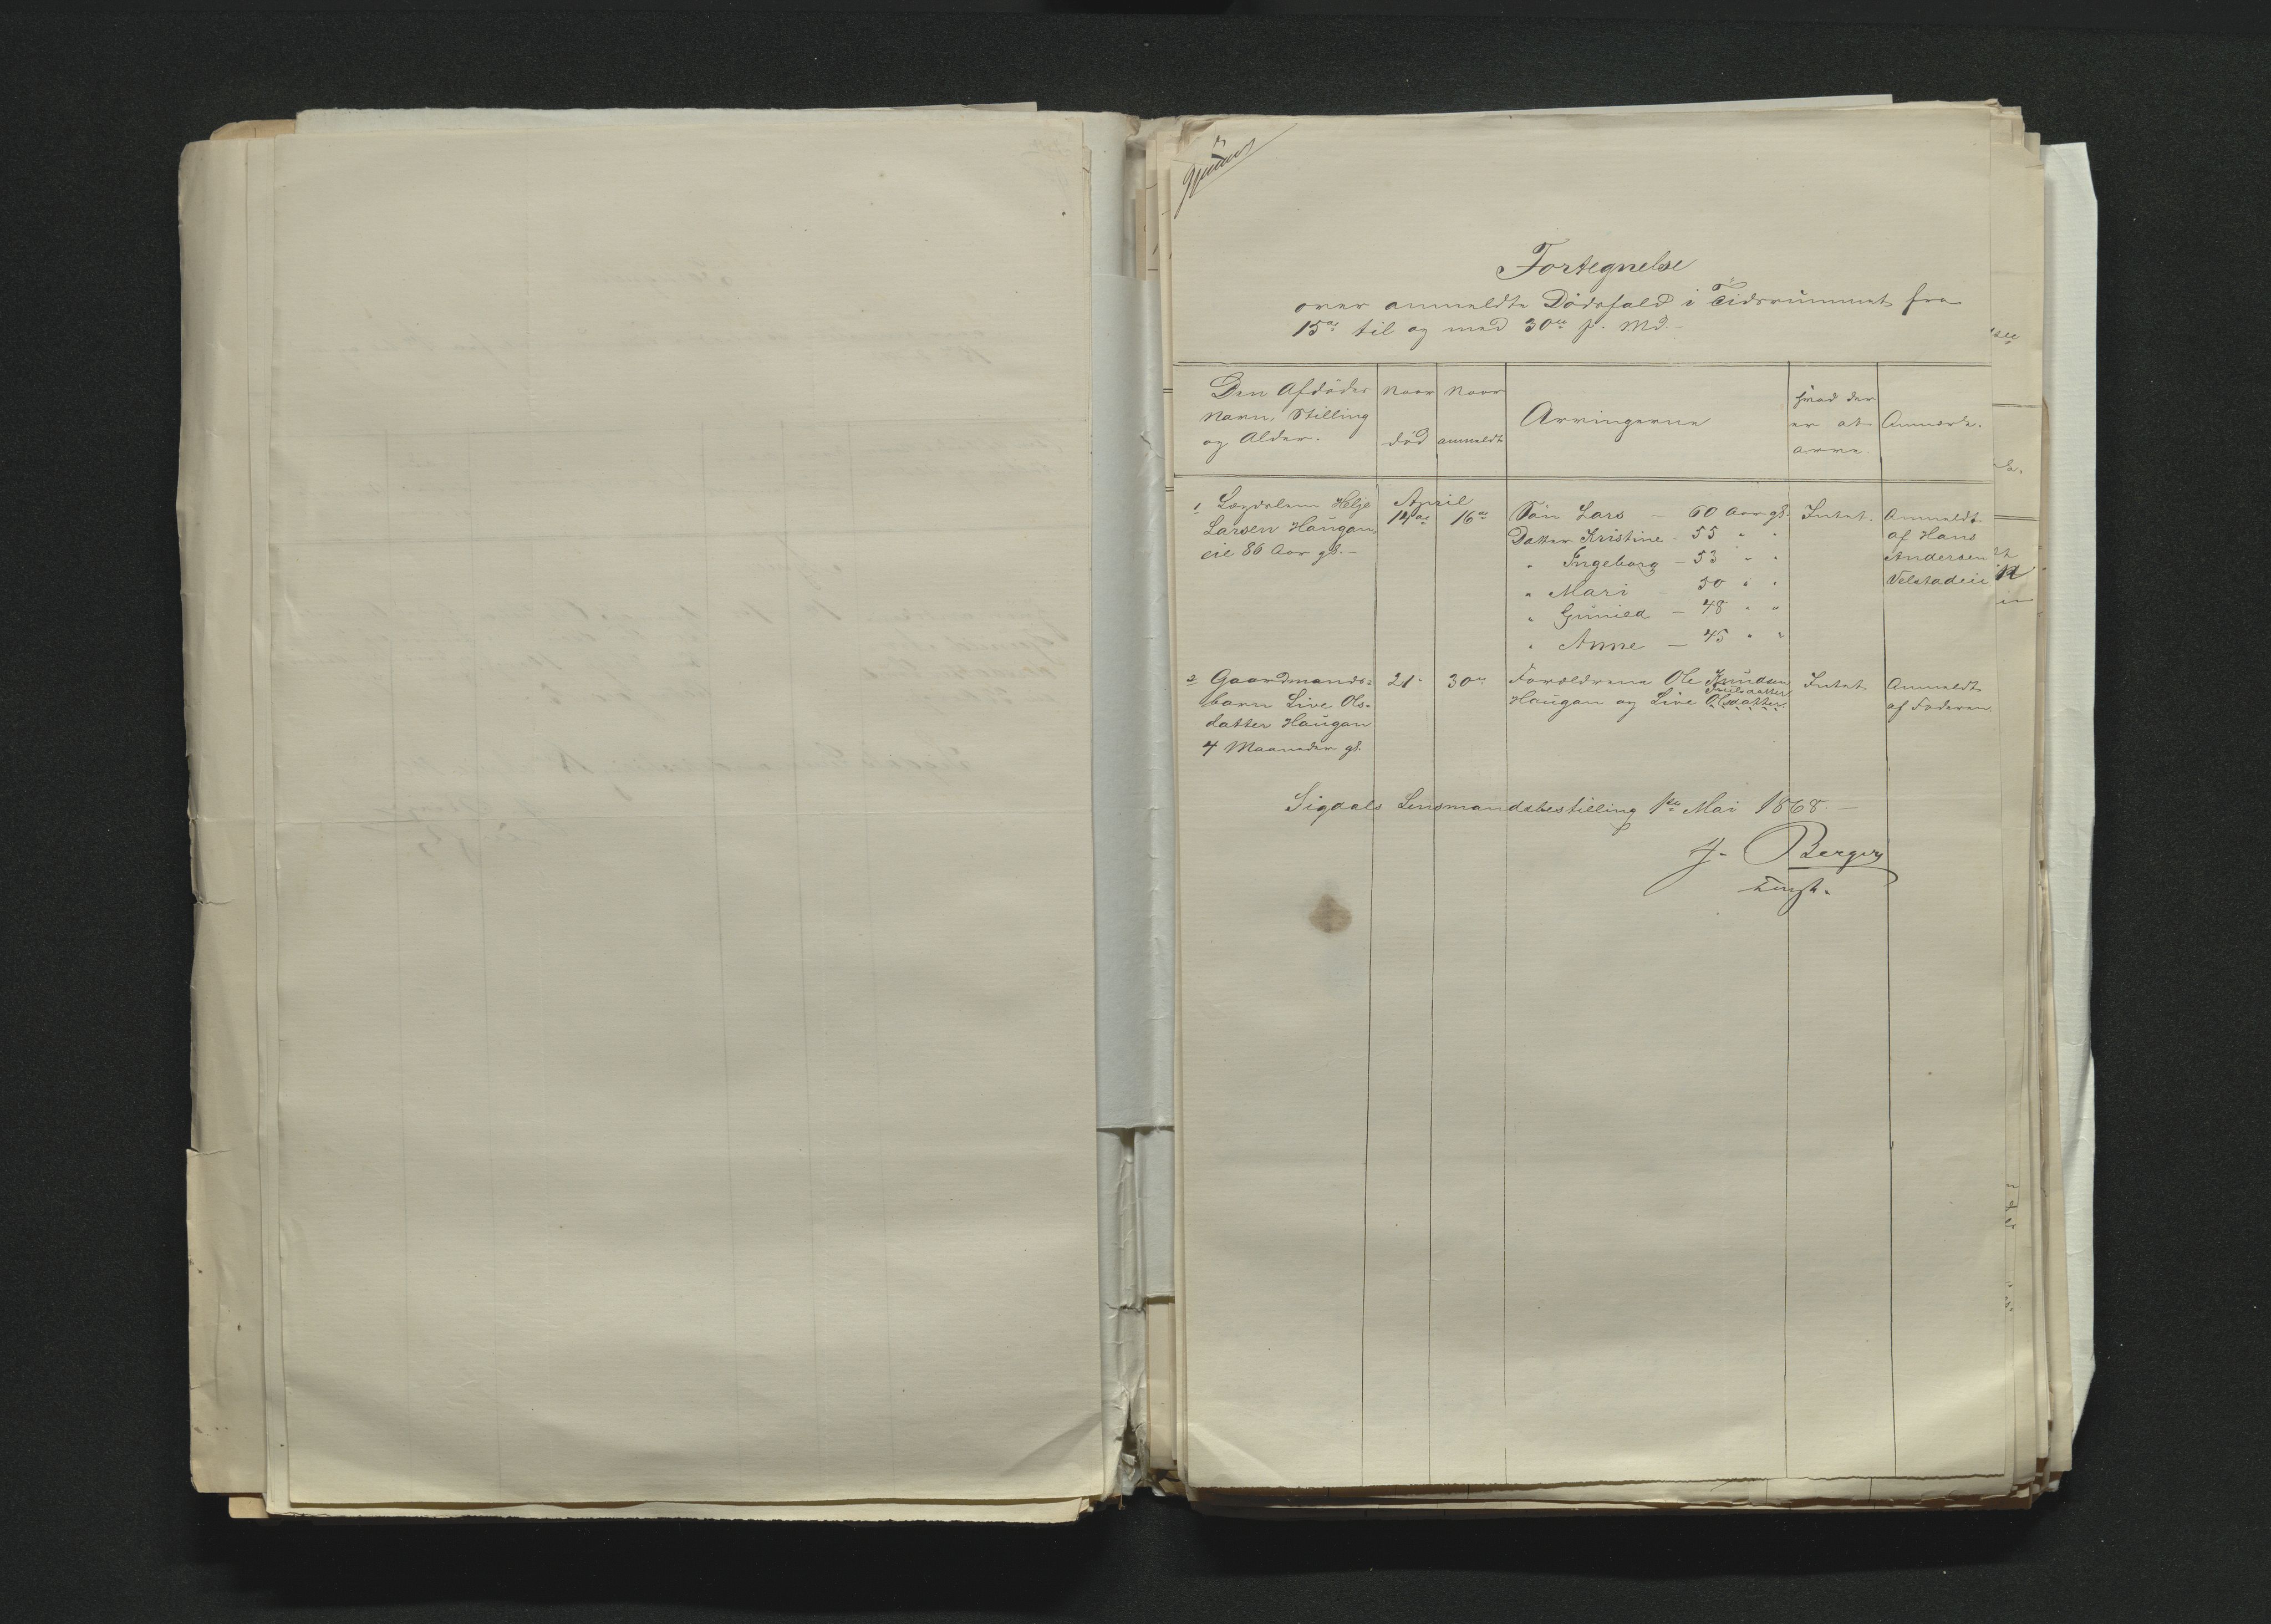 Fortegnelse
over anmeldte Dödsfald i Tidsrummet fra
15de til og med 30te p. Md. –
Den Afdödes
Navn, Stilling
og Alder.
Naar
död
Naar
anmeldt
Arvingerne
Hvad der
er at
arve
Anmærk.
April
1 Lægdslem Helje
Larsen Haugan-
eie 86 Aar gl. –
14de
16de
Sön Lars – 60 Aar gl.
Datter Kristine 55 " "
" Ingeborg – 53 " "
" Mari – 50 " "
" Gunild – 48 " "
" Anne – 45 " "
Intet.
Anmeldt
af Hans
Andersen
Velstadeie
2 Gaardmands-
barn Live Ols-
datter Haugan
4 Maaneder gl.
21
30te
Forældrene Ole Knudsen
Truulsdatter
Haugan og Live Olsdatter.
Intet
Anmeldt
af Faderen.
Sigdals Lensmandsbestilling 1ste Mai 1868. –
H. Berger